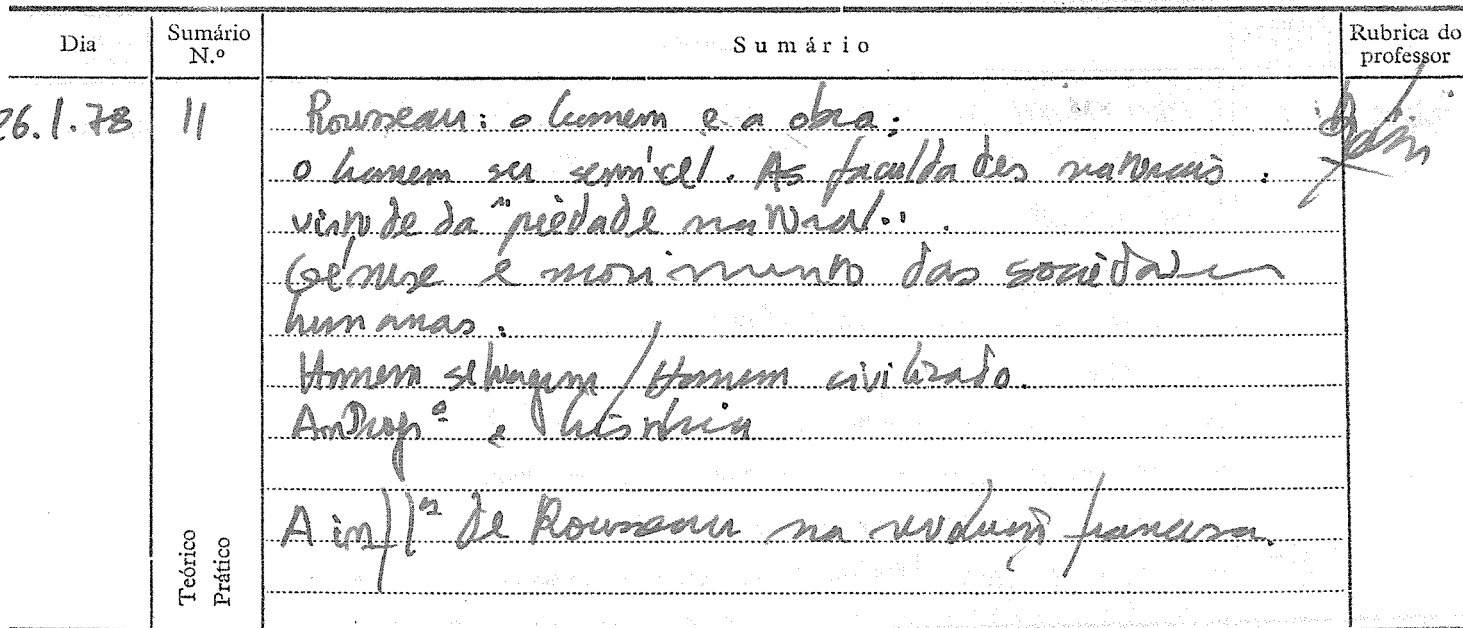 Dia
Sumário N.º
Sumário
Rubrica do professor
26.1.78
11
Rousseau: o homem e a obra.
o homem ser sensível. As faculdades naturais.
virtude da "piedade natural".
Génese e movimento das sociedades
humanas.
Homem selvagem / Homem civilizado.
Antropª e história
A inflª de Rousseau na revolução francesa.
Teórico
Prático